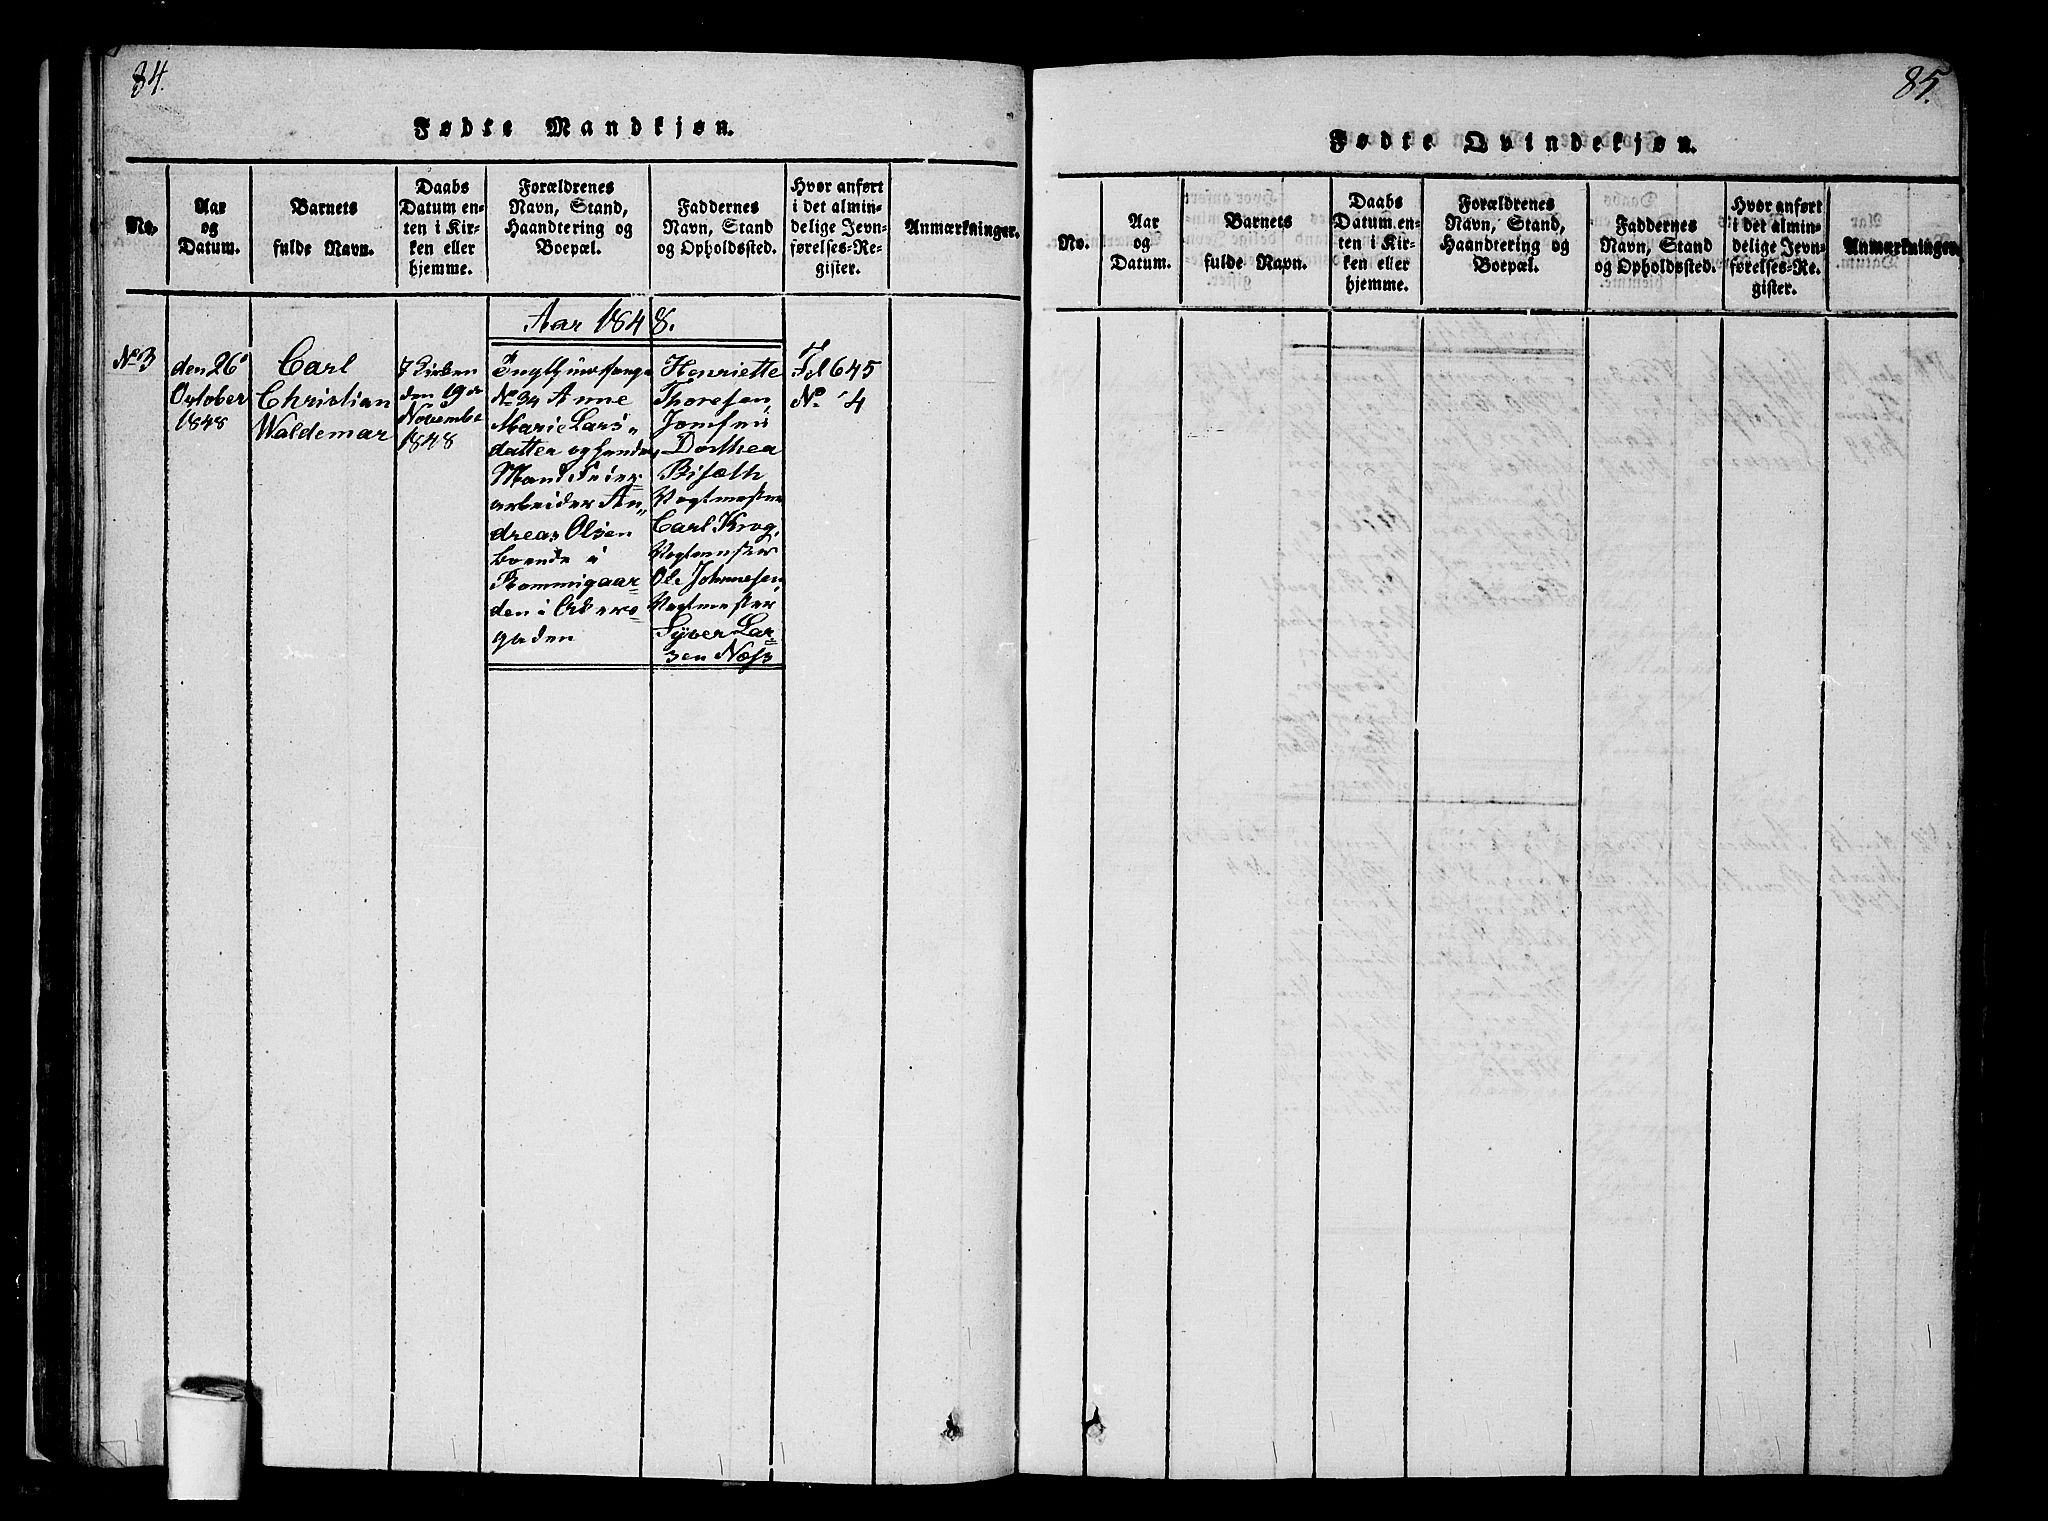 84.
Fødte Mandkjøn.
No.
Aar
og
Datum.
Barnets
fulde Navn.
Daabs
Datum en-
ten i Kir-
ken eller
hjemme.
Forældrenes
Navn, Stand,
Haandtering og
Boepæl.
Faddernes
Navn, Stand
og Opholdssted.
Hvor anført
i det almin-
delige Jevn-
førelses-Re-
gister.
Anmærkninger.
Aar 1848.
No 3
den 26de
October
1848
Carl
Christian
Waldemar
I Kirken
den 19de
November
1848
No 34 Anne
Marie Lars„
datter og hendes
Mand
arbeider An„
dreas Olsen
boende i
Rommigaar=
den i
gaden
Henriette
Thoresen,
Jomfru
Dorthea
Bisæth
Vogtmester
Carl Krog,
Vogtmester
Ole Johnnesen,
Vogtmester
Syver Lar=
sen Næss
Fol 645
No 4
85.
Fødte Qvindekjøn.
No.
Aar
og
Datum.
Barnets
fulde Navn.
Daabs
Datum en-
ten i Kir-
ken eller
hjemme.
Forældrenes
Navn, Stand,
Haandtering og
Boepæl.
Faddernes
Navn, Stand
og Opholdssted.
Hvor anført
i det almin-
delige Jevn-
førelses-Re-
gister.
Anmærkninger.